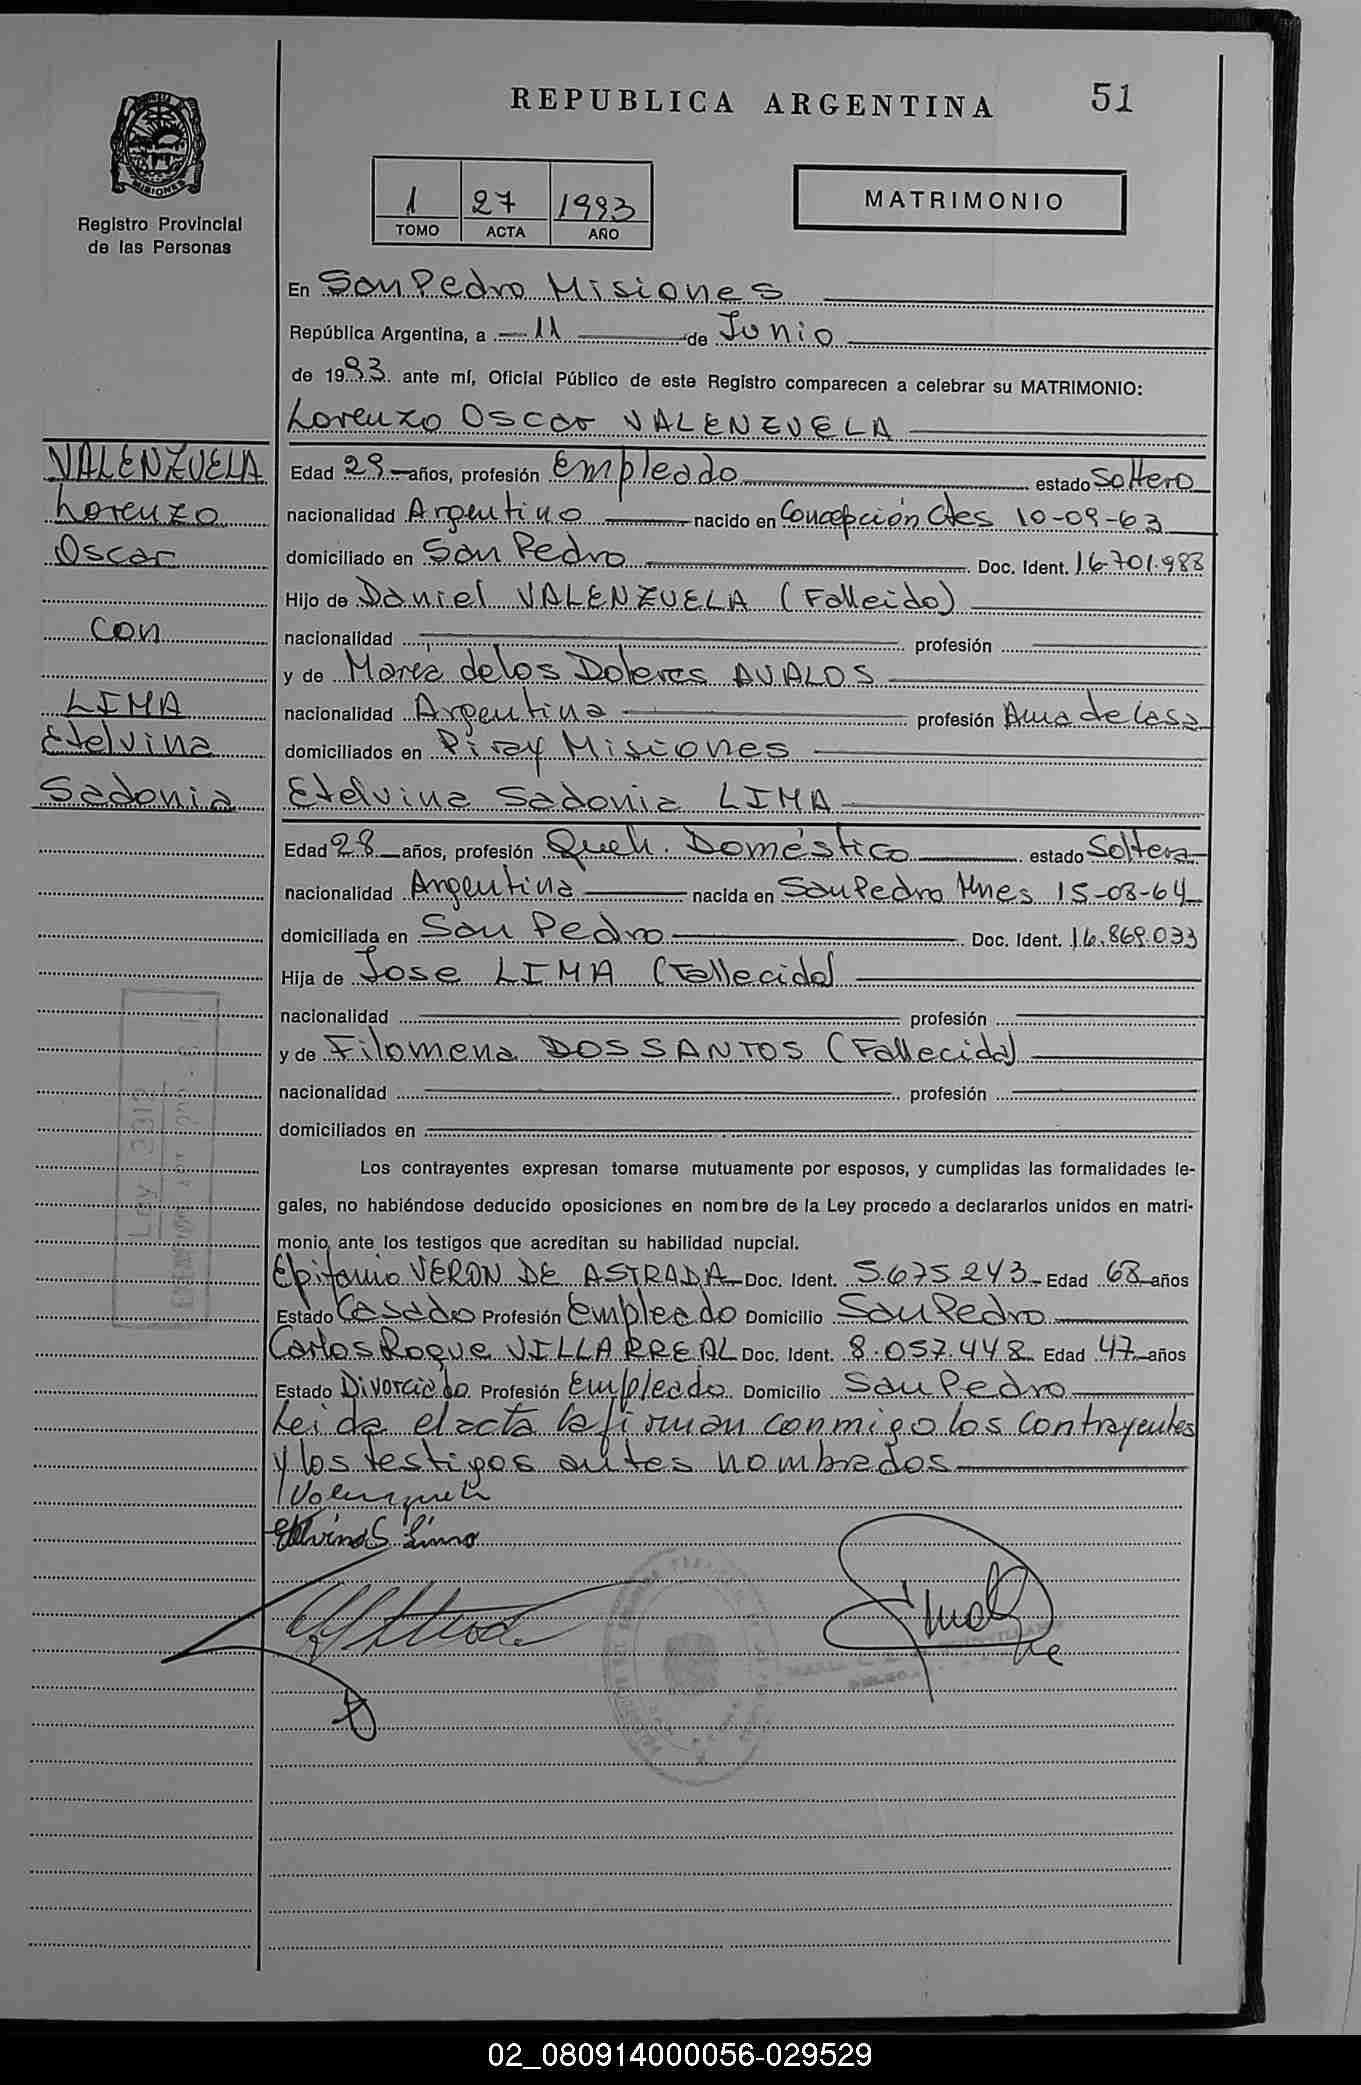 REPUBLICA ARGENTINA
51
MISIONES
Registro Provincial
de las Personas
1 27 1993
TOMO ACTA AÑO
MATRIMONIO
En San Pedro Misiones
República Argentina, a 11 de Junio
de 1993. ante mí, Oficial Público de este Registro comparecen a celebrar su MATRIMONIO:
Lorenzo Oscar VALENZUELA
VALENZUELA
Lorenzo
Oscar
con
LIMA
Etelvina
Sadonia
Edad 29 años, profesión Empleado estado Soltero
nacionalidad Argentino nacido en Concepción Ctes 10-09-63
domiciliado en San Pedro Doc. Ident. 16.701.988
Hijo de Daniel VALENZUELA (Falleido)
nacionalidad profesión
y de María de los Dolores AVALOS
nacionalidad Argentina profesión Ama de Casa
domiciliados en Piray Misiones
Etelvina Sadonia LIMA
Edad 28 años, profesión Queh. Doméstico estado Soltera
nacionalidad Argentina nacida en San Pedro Mnes 15-08-64
domiciliada en San Pedro Doc. Ident. 16.869.033
Hija de Jose LIMA (Fallecido)
nacionalidad profesión
y de Filomena DOS SANTOS (Fallecida)
nacionalidad profesión
domiciliados en
Ley 3312
Los contrayentes expresan tomarse mutuamente por esposos, y cumplidas las formalidades le-
gales, no habiéndose deducido oposiciones en nombre de la Ley procedo a declararlos unidos en matri-
monio ante los testigos que acreditan su habilidad nupcial.
Epifanio VERON DE ASTRADA Doc. Ident. 5.675.243 Edad 68 años
Estado Casado Profesión Empleado Domicilio San Pedro
Carlos Roque VILLARREAL Doc. Ident. 8.057.448 Edad 47 años
Estado Divorciado Profesión Empleado Domicilio San Pedro
Leida el acta la firman conmigo los contrayentes
y los testigos antes nombrados
Valenzuela
Etelvina S Lima
02_080914000056-029529